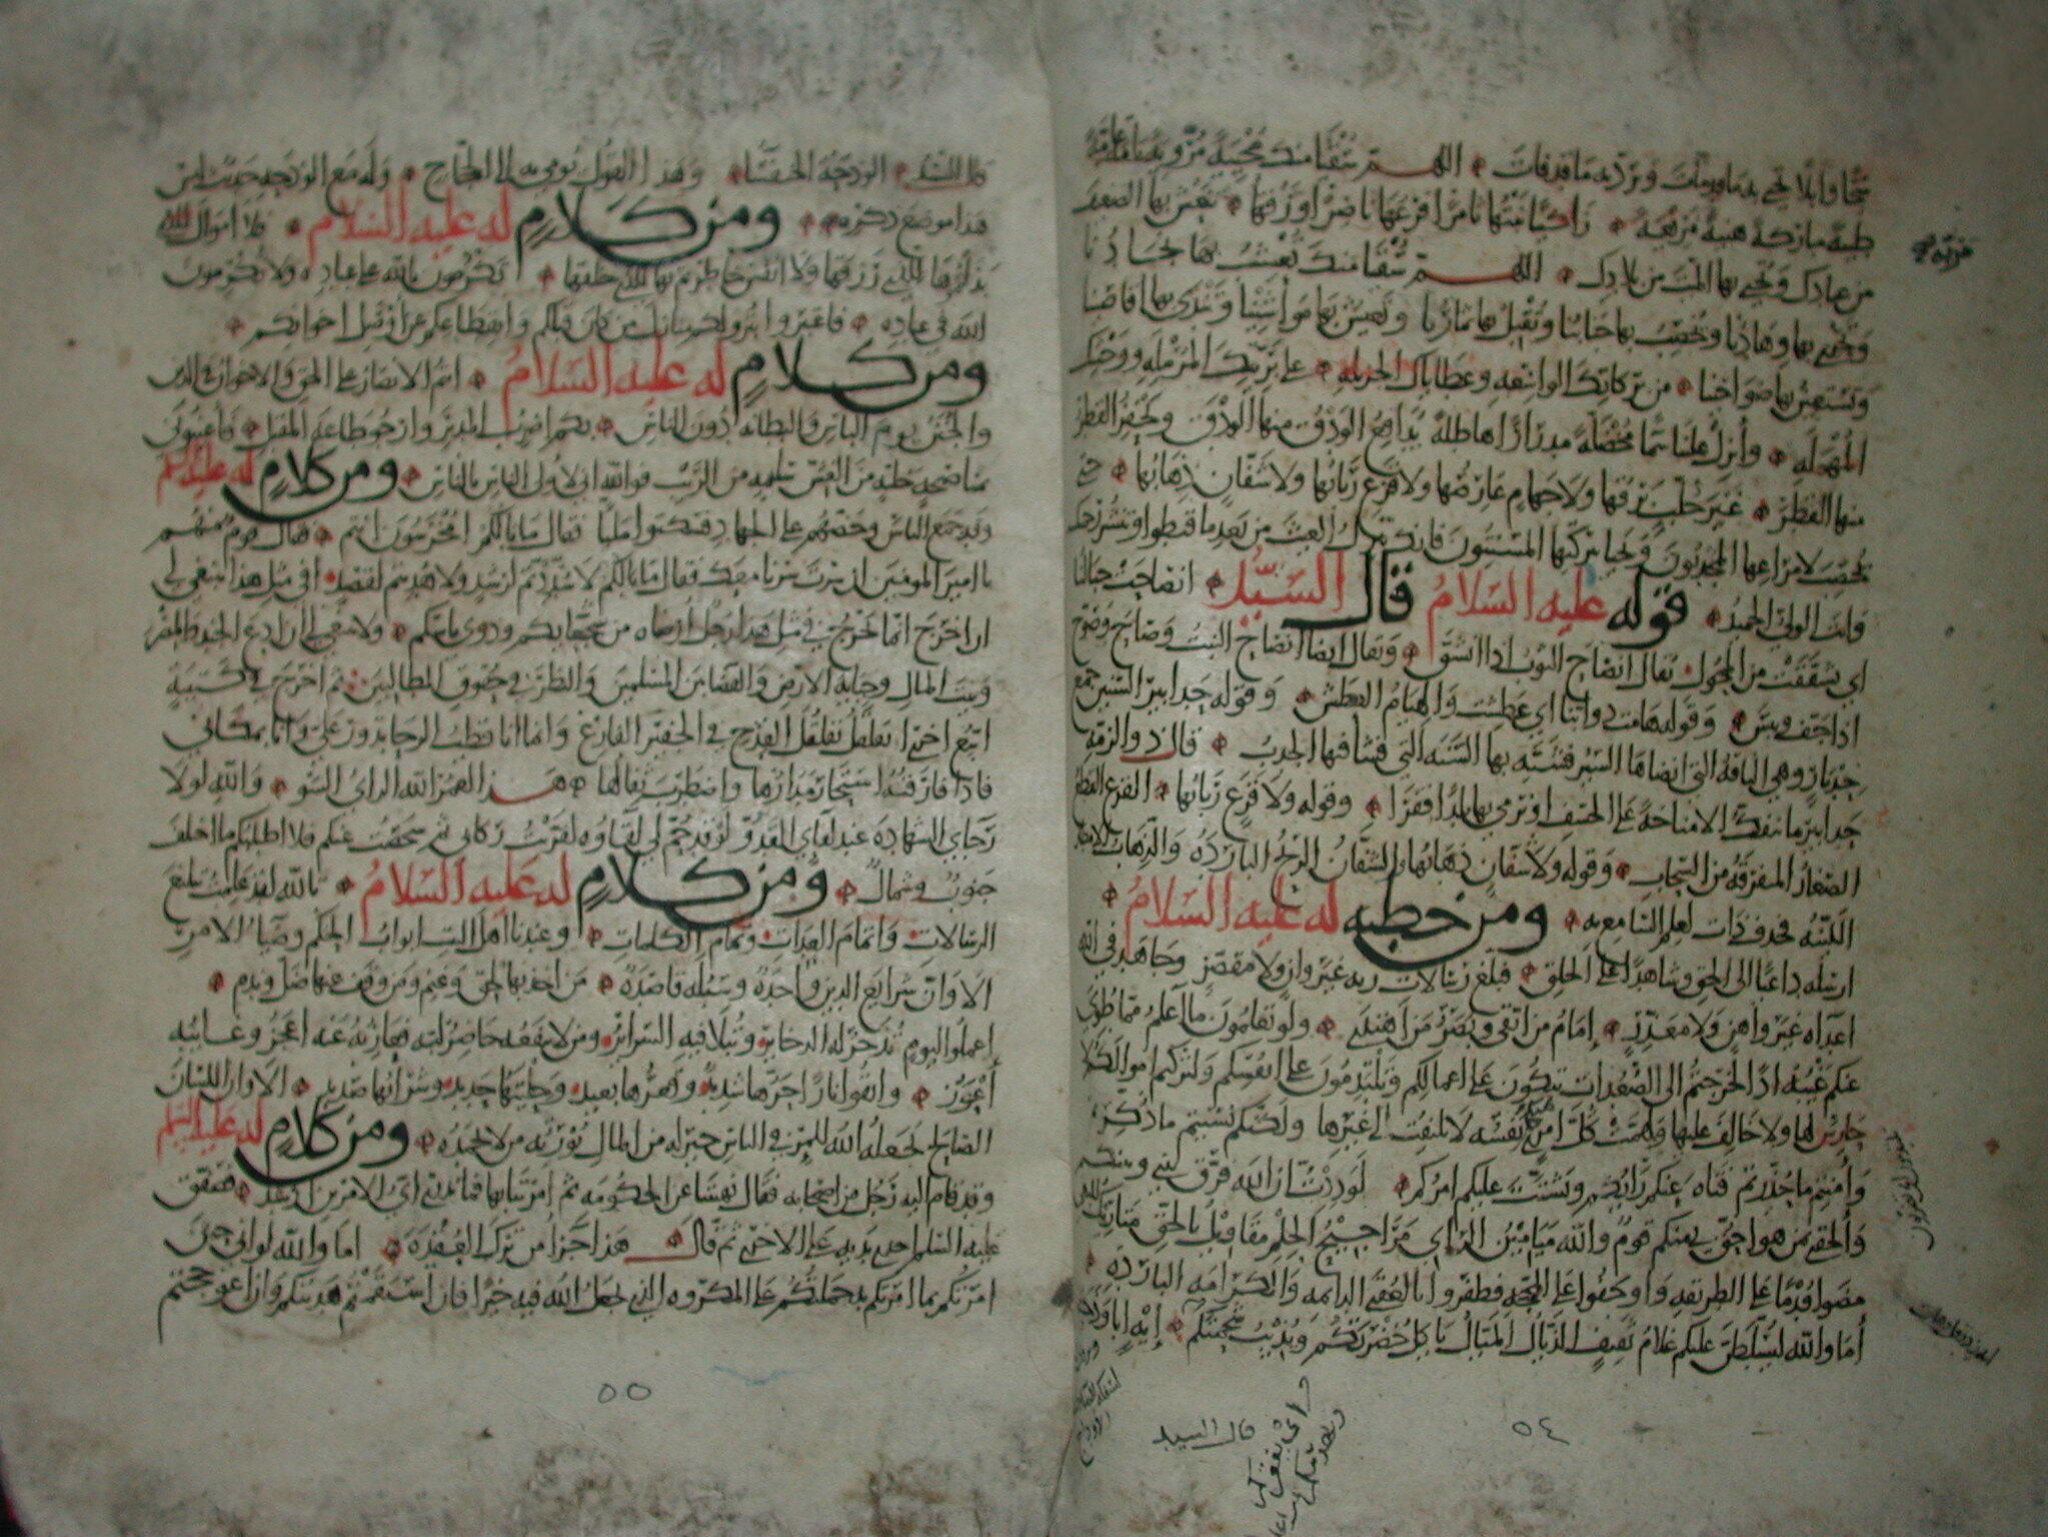 سحا وابلا تحيي به ما قد مات وترد به ما قد فات ۞ اللهم سقيا منك محيية مروية تامة عامة
طيبة مباركة هنيئة مريعة ۞ زاكيا نبتها ثامرا فرعها ناضرا ورقها ۞ تنعش بها الضعيف
من عبادك وتحيي بها الميت من بلادك ۞ اللهم سقيا منك تعشب بها نجادنا
وتجري بها وهادنا ويخصب بها جنابنا وتقبل بها ثمارنا وتعيش بها مواشينا وتندى بها اقاصينا
وتستعين بها ضواحينا ۞ من بركاتك الواسعة وعطاياك الجزيلة ۞ على بريتك المرملة ووحشك
المهملة ۞ وأنزل علينا سماء مخضلة مدرارا هاطلة يدافع الودق منها الودق ويحفز القطر
منها القطر ۞ غير خلب برقها ولا جهام عارضها ولا قزع ربابها ولا شفان ذهابها ۞ حتى
يخصب لامراعها المجدبون ويحيا ببركتها المسنتون فانك تنزل الغيث من بعد ما قنطوا وتنشر رحمتك
وانت الولي الحميد ۞ قوله عليه السلام قال السيد ۞ انصاحت جبالنا
اي تشققت من المحول يقال انصاح الثوب اذا انشق ۞ ويقال ايضا انصاح النبت وصاح وصوح
اذا جف ويبس ۞ وقوله هامت دوابنا اي عطشت والهيام العطش ۞ وقوله حدابير السنين جمع
حدبار وهي الناقة التي انضاها السير فشبه بها السنة التي فشا فيها الجدب ۞ قال ذو الرمة
حدابير ما تنفك الا مناخة على الخسف او نرمي بها بلدا قفرا ۞ وقوله ولا قزع ربابها ۞ القزع القطع
الصغار المتفرقة من السحاب ۞ وقوله ولا شفان ذهابها والشفان الريح الباردة والذهاب الامطار
اللينة فحذف ذات لعلم السامع به ۞ ومن خطبة له عليه السلام ۞
ارسله داعيا الى الحق وشاهدا على الخلق ۞ فبلغ رسالات ربه غير وان ولا مقصر وجاهد في الله
اعداه غير واهن ولا معذر ۞ إمام من اتقى وبصر من اهتدى ۞ ولو تعلمون ما اعلم مما طوي
عنكم غيبه اذا لخرجتم الى الصعدات تبكون على اعمالكم وتلتدمون على انفسكم ولتركتم اموالكم لا
حارس لها ولا خالف عليها ولهمت كل امرئ نفسه لا يلتفت الى غيرها ولكنكم نسيتم ما ذكرتم
وأمنتم ما حذرتم فتاه عنكم رأيكم وتشتت عليكم امركم لوددت ان الله فرق بيني وبينكم
وألحقني بمن هو احق بي منكم قوم والله ميامين الراي مراجيح الحلم مقاويل بالحق متاريك للبغي
مضوا قدما على الطريقة وأوجفوا على المحجة فظفروا بالعقبى الدائمة والكرامة الباردة ۞
أما والله ليسلطن عليكم غلام ثقيف الذيال الميال يأكل خضرتكم ويذيب شحمتكم ۞ إيه ابا وذحة
قال السيد
٥٤
قال السيد ۞ الوذحة الخنفساء ۞ وهذا القول يومي به الى الحجاج ۞ وله مع الوذحة حديث ليس
هذا موضع ذكره ۞ ومن كلام له عليه السلام ۞ فلا اموال
بذلتموها للذي رزقها ولا انفس خاطرتم بها للذي خلقها ۞ تكرمون بالله على عباده ولا تكرمون
الله في عباده ۞ فاعتبروا بنزولكم منازل من كان قبلكم وانقطاعكم عن أوصل اخوانكم ۞
ومن كلام له عليه السلام ۞ انتم الانصار على الحق والاخوان في الدين
والجنن يوم الباس والبطانة دون الناس ۞ بكم اضرب المدبر وارجو طاعة المقبل ۞ فأعينوني
بمناصحة خلية من الغش سليمة من الريب فوالله اني لاولى الناس بالناس ۞ ومن كلام له عليه السلم
وقد جمع الناس وحضهم على الجهاد فسكتوا مليا فقال ما بالكم امخرسون انتم ۞ فقال قوم منهم
يا امير المومنين ان سرت سرنا معك فقال ما بالكم لا سددتم لرشد ولا هديتم لقصد ۞ افي مثل هذا ينبغي لي
ان اخرج انما يخرج في مثل هذا رجل ارضاه من شجعانكم وذوي باسكم ۞ ولا ينبغي لي ان ادع الجند والمصر
وبيت المال وجباية الارض والقضا بين المسلمين والنظر في حقوق المطالبين ۞ ثم اخرج في كتيبة
اتبع اخرى اتقلقل تقلقل القدح في الجفير الفارغ وانما انا قطب الرحا تدور علي وانا بمكاني
فاذا فارقته استحار مدارها واضطرب ثفالها ۞ هذا لعمر الله الراي السوء ۞ والله لولا
رجاي الشهادة عند لقاي العدو لو قد حم لي لقاوه لقربت ركابي ثم شخصت عنكم فلا اطلبكم ما اختلف
جنوب وشمال ۞ ومن كلام له عليه السلام ۞ تالله لقد علمت تبليغ
الرسالات واتمام العدات وتمام الكلمات ۞ وعندنا اهل البيت ابواب الحكم وضياء الامر
الا وان شرايع الدين واحدة وسبله قاصدة ۞ من اخذ بها لحق وغنم ومن وقف عنها ضل وندم ۞
اعملوا ليوم تذخر له الذخاير وتبلا فيه السراير ومن لا ينفعه حاضر لبه فعازبه عنه اعجز وغائبه
أعوز ۞ واتقوا نارا حرها شديد وقعرها بعيد وحليتها حديد وشرابها صديد ۞ الا وان اللسان
الصالح يجعله الله للمرء في الناس خير له من المال يورثه من لا يحمده ۞ ومن كلام له عليه السلم
وقد قام اليه رجل من اصحابه فقال نهيتنا عن الحكومة ثم امرتنا بها فما ندري اي الامرين ارشد ۞ فصفق
عليه السلم احدى يديه على الاخرى ثم قال ۞ هذا جزا من ترك العقدة ۞ اما والله لو اني حين
امرتكم بما امرتكم به حملتكم على المكروه الذي يجعل الله فيه خيرا فان استقمتم هديتكم وان اعوججتم
٥٥